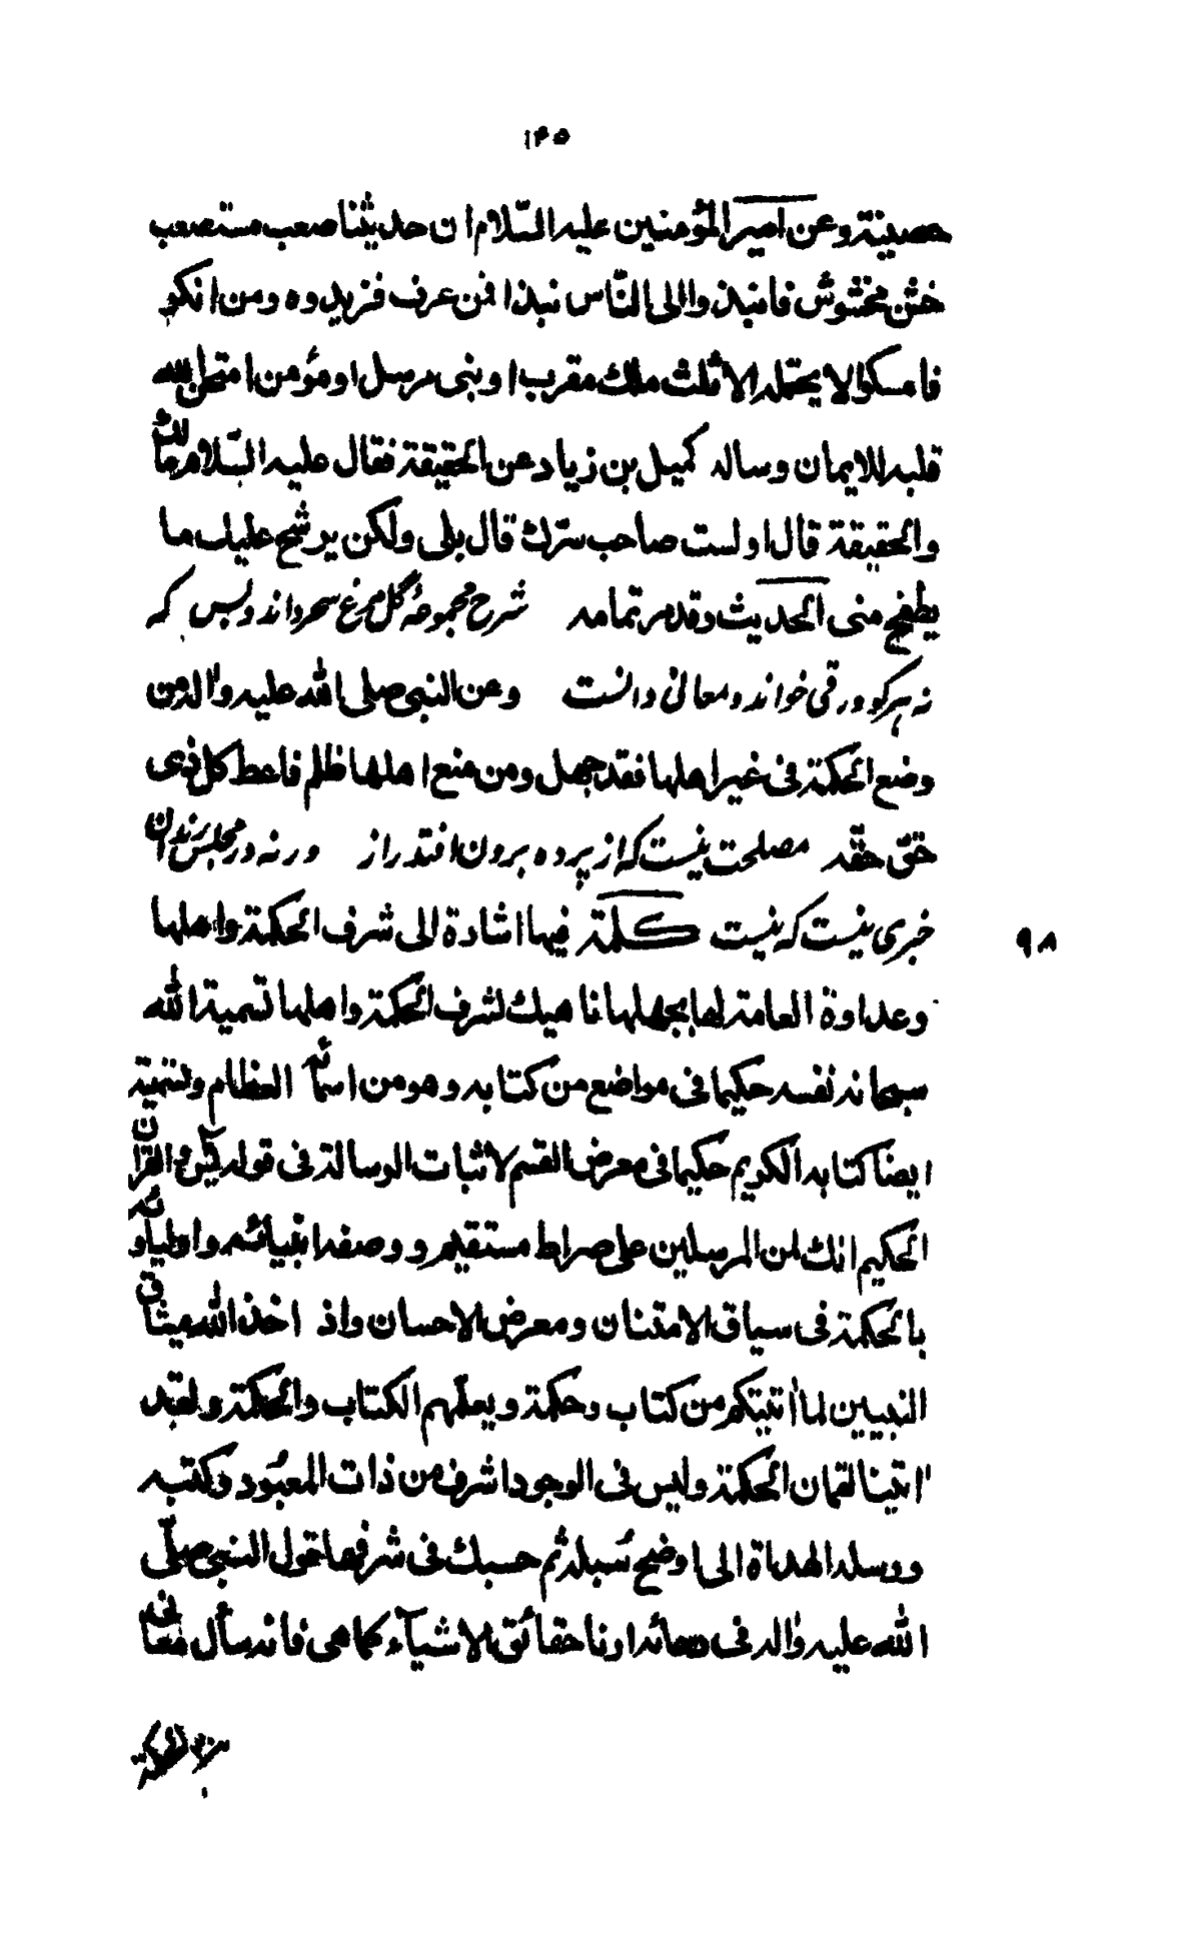 ١٣٥
حصينة وعن امير المؤمنين عليه السّلام ان حديثنا صعب مستصعب
خشن مخشوش فانبذوا الى النّاس نبذا فمن عرف فزيدوه ومن انكر
فامسكوا لا يحتمله الا ثلث ملك مقرب او نبى مرسل او مؤمن امتحن الله
قلبه للايمان وساله كميل بن زياد عن الحقيقة فقال عليه السّلام مالك
والحقيقة قال اولست صاحب سرّك قال بلى ولكن يرشح عليك ما
يطفح منى الحديث وقد مر تمامه شرح مجموعهٔ گل مرغ سحر داند وبس كه
نه هر كو ورقى خواند ومعانى دانست وعن النبى صلى الله عليه واله من
وضع الحكمة فى غير اهلها فقد جهل ومن منع اهلها ظلم فاعط كل ذى
حقّ حقّه مصلحت نيست كه از پرده برون افتد راز ورنه در مجلس رندان
خبرى نيست كه نيست كلمة فيها اشارة الى شرف الحكمة واهلها
٩٨
وعداوة العامة لها بجهلها ناهيك لشرف الحكمة واهلها تسمية الله
سبحانه نفسه حكيما فى مواضع من كتابه وهو من اسمائه العظام وتسميته
ايضا كتابه الكريم حكيما فى معرض القسم لاثبات الرسالة فى قوله يس والقرآن
الحكيم انك لمن المرسلين على صراط مستقيم ووصفه انبيائه واوليائه
بالحكمة فى سياق الامتنان ومعرض الاحسان واذ اخذ الله ميثاق
النبيين لما اتيتكم من كتاب وحكمة ويعلّمهم الكتاب والحكمة ولقد
اتينا لقمان الحكمة وليس فى الوجود اشرف من ذات المعبود وكتبه
ورسله الهداة الى اوضح سُبله ثم حسبك فى شرفها قول النبى صلّى
الله عليه واله فى دعائه ارنا حقائق الاشياء كما هى فانه سأل معانى